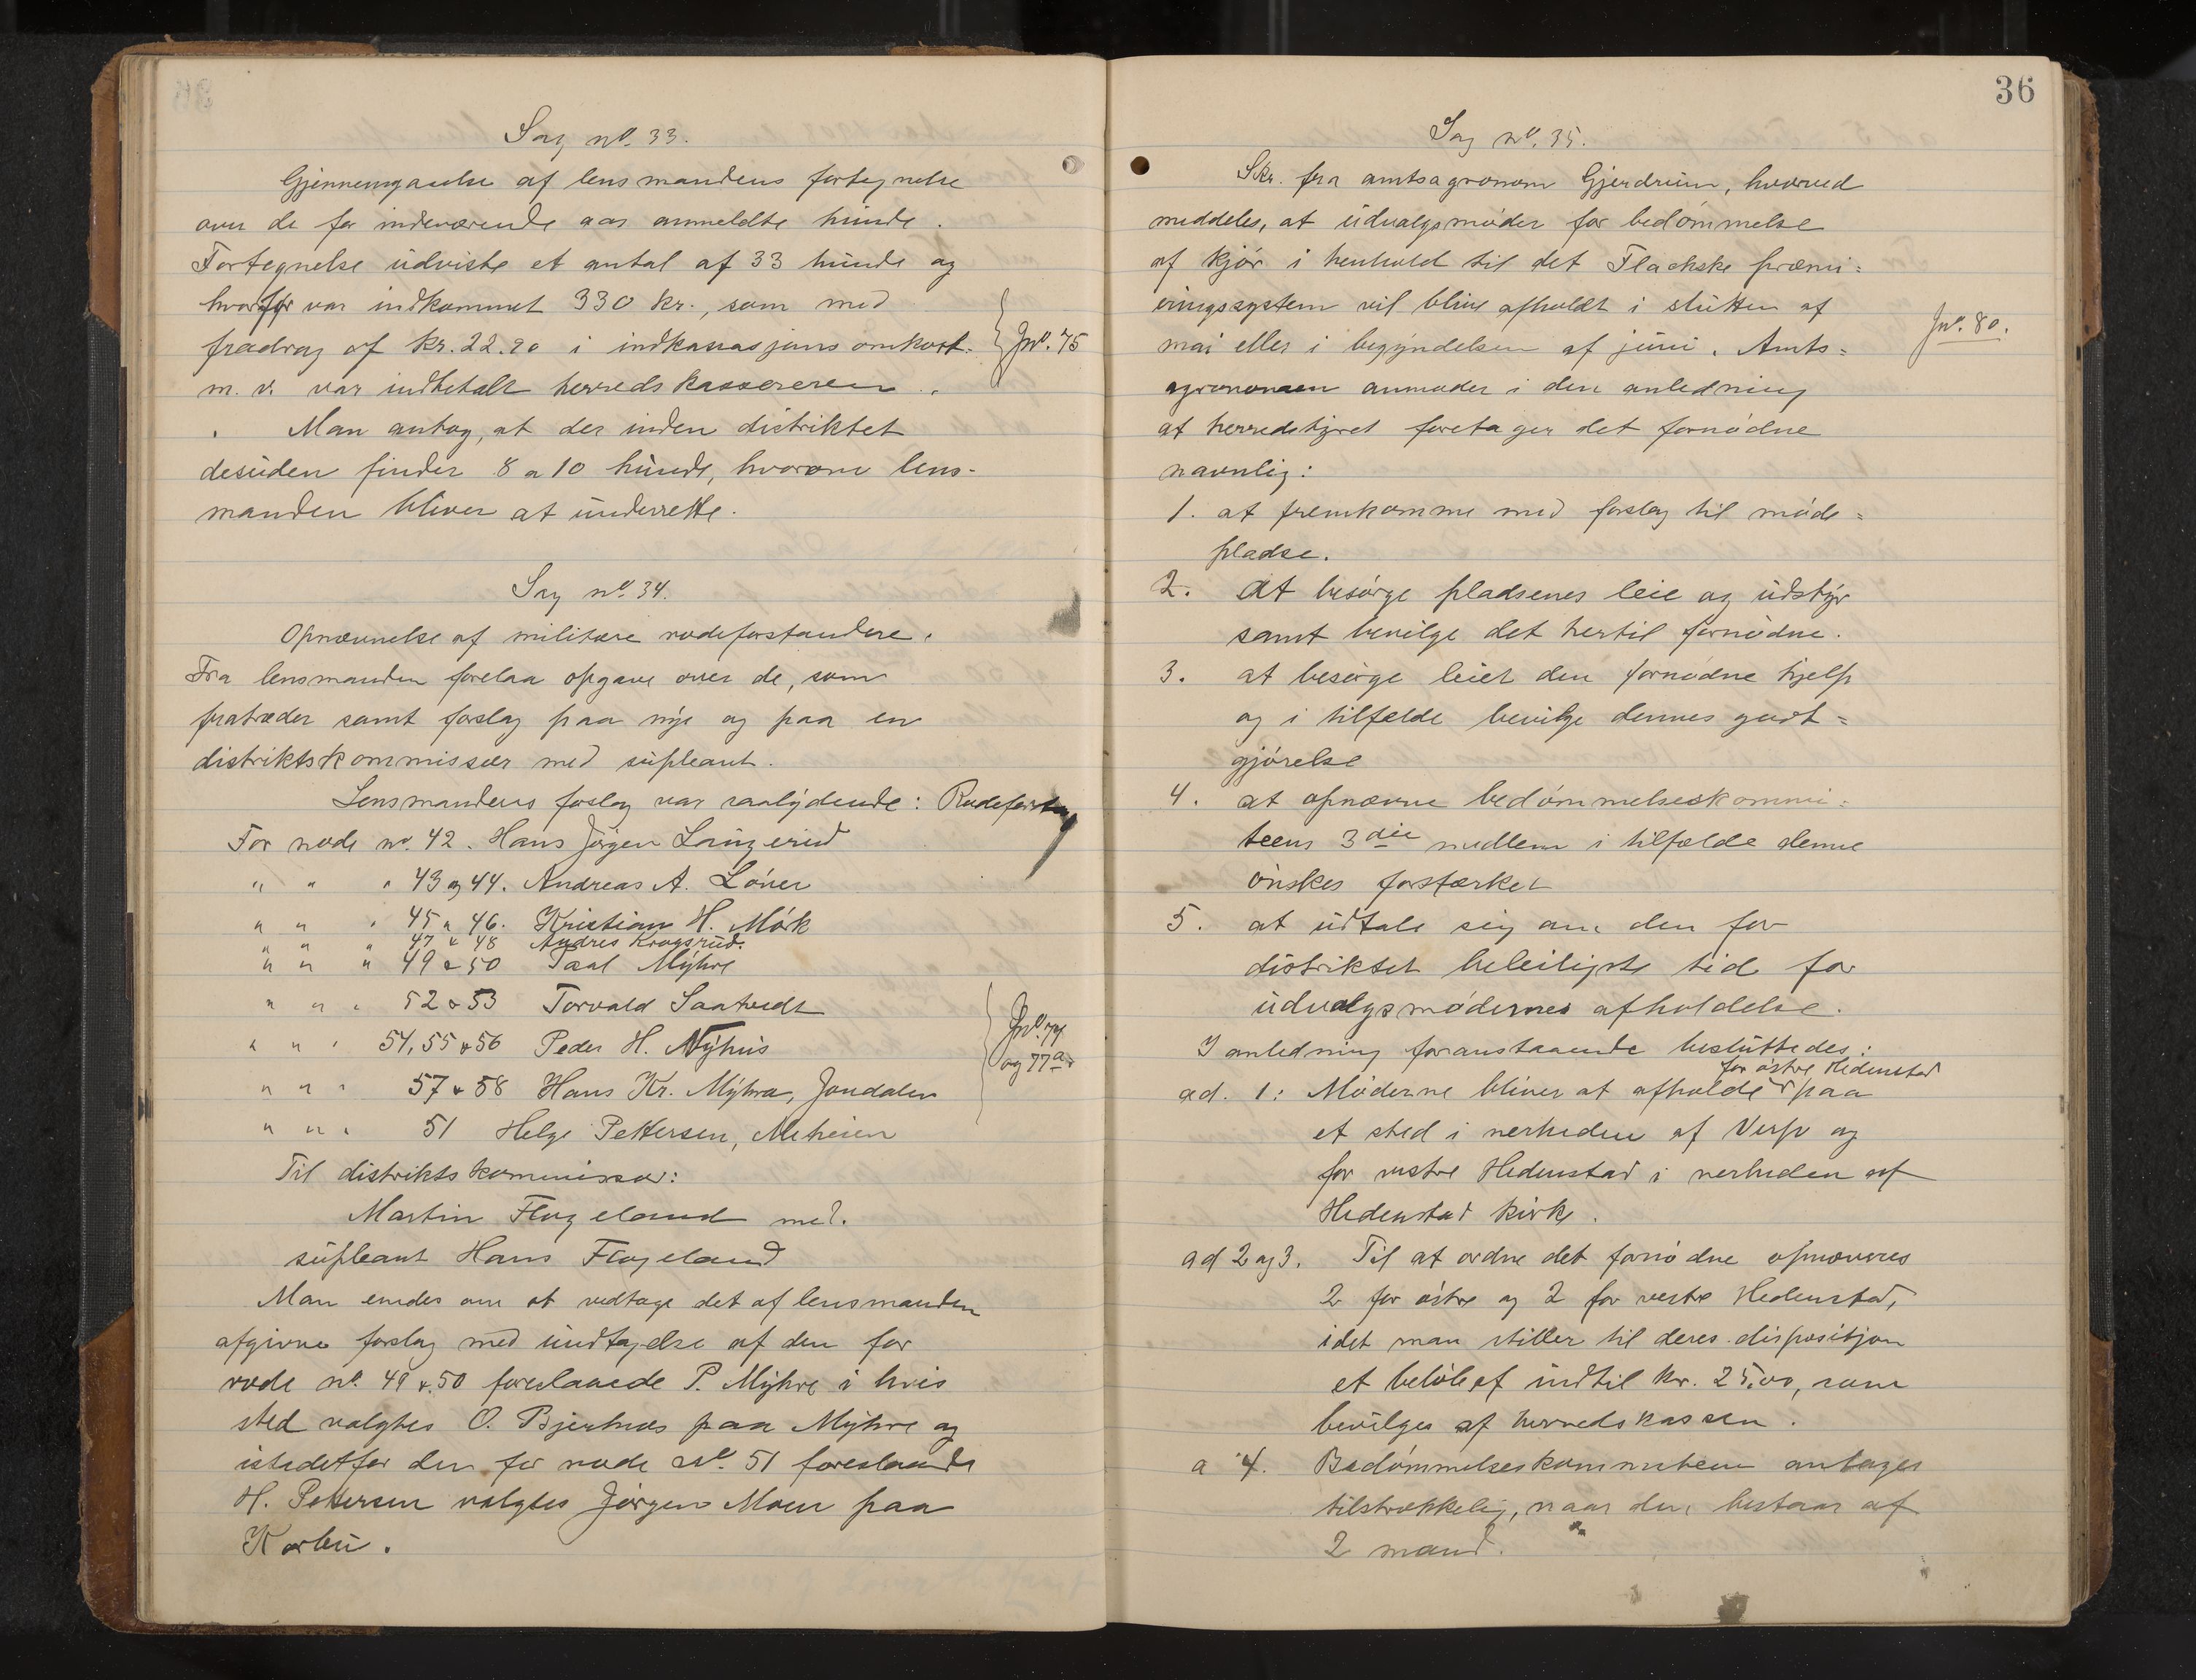 Sag nº. 33.
Gjennemgaaelse af lensmandens fortegnelse
over de for indeværende aar anmeldte hunde.
Fortegnelse udviste et antal af 33 hunde og
hvorfor var indkommet 330 kr., som med
fradrag af kr. 22.20 i indkassasjonsomkost.
Jnº. 75
m. v. var indbetalt herredskassereren.
Man antog, at der inden distriktet
desuden finder 8 a 10 hunde, hvorom lens-
manden bliver at underrette.
Sag nº. 34.
Opnævnelse af militære rodeforstandere.
Fra lensmanden forelaa opgave over de, som
fratræder samt forslag paa nye og paa en
distriktskommissær med supleant.
Lensmandens forslag var saalydende: Rodeforstan
For rode nº. 42. Hans Jørgen Laugerud
" " " 43 og 44. Andreas A. Løver
" " " 45 " 46. Kristian H. Mørk
" " " 47 & 48 Andres Krogsrud.
" " " 49 & 50 Paal Myhre
" " " 52 & 53 Torvald Saatvedt
" " " 54, 55 & 56 Peder H. Nyhus
Jnº. 77
og 77a
" " " 57 & 58 Hans Kr. Myhra, Jondalen
" " " 51 Helge Pettersen, Meheien
Til distriktskommissær:
Martin Flageland med.
supleant Hans Flageland
Man enedes om at vedtage det af lensmanden
afgivne forslag med undtagelse af den for
rode nº. 49 & 50 foreslaaede P. Myhre i hvis
sted valgtes O. Bjerknes paa Myhre og
istedetfor den for rode nº. 51 foreslaaede
H. Pettersen valgtes Jørgen Moen paa
Korbu.
36
Sag nº. 35.
Skr. fra amtsagronom Gjerdrum, hvorved
meddeles, at udvalgsmøder for bedømmelse
af kjør i henhold til det Flackske præmi=
eringssystem vil blive afholdt i slutten af
mai eller i begyndelsen af juni. Amts=
Jnº. 80.
agronomen anmoder i den anledning
at herredstyret foretager det fornødne
navnlig:
1. at fremkomme med forslag til møde=
pladse.
2. At besørge pladsenes leie og udstyr
samt bevilge det hertil fornødne.
3. at besørge leiet den fornødne hjelp
og i tilfælde bevilge dennes godt=
gjørelse
4. at opnævne bedømmelseskommi=
teens 3die medlem i tilfælde denne
ønskes forstærket
5. at udtale sig om den for
distriktet beleiligste tid for
udvalgsmødernes afholdelse.
I anledning foranstaaende besluttedes:
for østre Hedenstad
ad. 1: Møderne bliver at afholde paa
et sted i nerheden af Verp og
for vestre Hedenstad i nerheden af
Hedenstad kirke.
ad 2 og 3. Til at ordne det fornødne opnævnes
2 for østre og 2 for vestre Hedenstad,
idet man stiller til deres disposisjon
et beløb af indtil kr. 25,00, som
bevilges af herredskassen.
a 4. Bedømmelseskommiteen antages
tilstrækkelig, naar den bestaar af
2 mand.